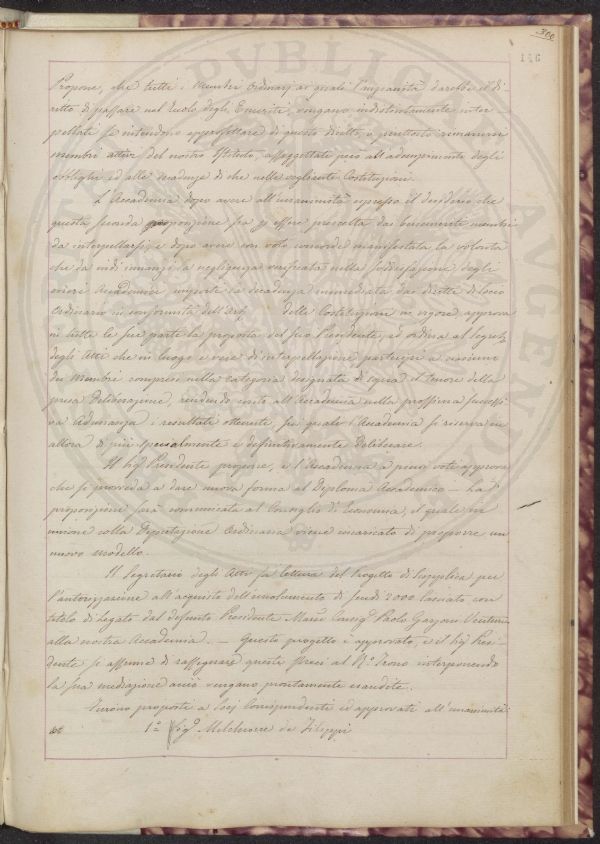 300
146
Propone, che tutti i Membri Ordinarj ai quali l'impianità darebbe il di-
ritto di passare nel Ruolo degli Emeriti, vengano indistintamente inter-
pellati se intendono approfittare di questo diritto, o piuttosto rimanersi
membri attivi del nostro Istituto, assoggettati però all'adempimento degli
obblighi ed alle decadenze di che nelle veglianti Costituzioni.
L'Accademia dopo avere all'unanimità espresso il desiderio che
questa seconda proposizione sia per essere prescelta dai benemeriti membri
da interpellarsi, e dopo avere con voto concorde manifestata la volontà
che da indi innanzi la negligenza verificata nella soddisfazione degli
oneri Accademici importi la decadenza immediata dai diritti di Socio
Ordinario in conformità dell'Art. delle Costituzioni in vigore, approva
in tutte le sue parti la proposta del suo Presidente, ed ordina al Segret.
degli Atti che in luogo e vece di interpellazione partecipi a ciascuno
dei Membri compresi nella categoria designata di sopra il tenore della
presa Deliberazione, rendendo conto all'Accademia nella prossima successi-
va Adunanza i resultati ottenuti, sui quali l'Accademia si riserva in
allora di più specialmente e definitivamente deliberare.
Il Sig. Presidente propone, e l'Accademia a pieni voti approva
che si provveda a dare nuova forma al Diploma Accademico – La
proposizione sarà comunicata al Consiglio di Economia, il quale in
unione colla Deputazione Ordinaria viene incaricato di proporre un
nuovo modello.
Il Segretario degli Atti fa lettura del Progetto di Supplica per
l'autorizzazione all'acquisto dell'emolumento di Scudi 2000 lasciato con
titolo di Legato dal defunto Presidente March. Consig. Paolo Garzoni Venturi
alla nostra Accademia. – Questo progetto è approvato, e il Sig. Presi-
dente si assume di rassegnare queste preci al R. Trono interponendo
la sua mediazione acciò vengano prontamente esaudite.
Furono proposti a Socj Corrispondenti e approvati all'unanimità
1.° Sig. Melchiorre de Filippi